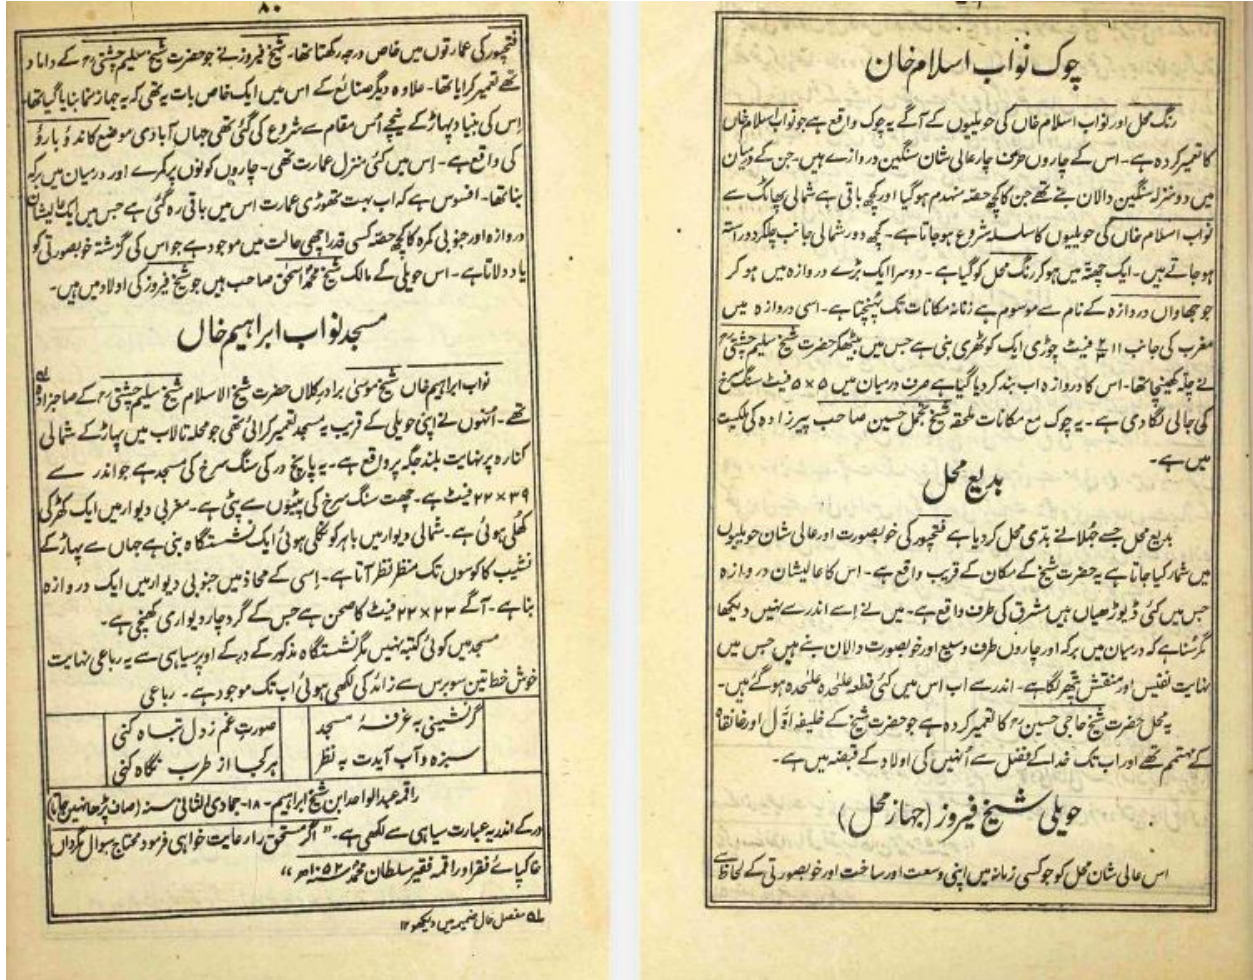 چوک نواب اسلام خان
رنگ محل اور نواب اسلام خاں کی حویلیوں کے آگے یہ چوک واقع ہے جو نواب اسلام خاں
کا تعمیر کردہ ہے۔ اس کے چاروں طرف چار عالی شان سنگین دروازے ہیں۔ جن کے درمیان
میں دو منزلہ سنگین دالان بنے تھے جن کا کچھ حصہ منہدم ہوگیا اور کچھ باقی ہے شمالی پھاٹک سے
نواب اسلام خاں کی حویلیوں کا سلسلہ شروع ہوجاتا ہے۔ کچھ دور شمالی جانب چلکر دو راستہ
ہوجاتے ہیں۔ ایک چھتہ میں ہوکر رنگ محل کو گیا ہے۔ دوسرا ایک بڑے دروازہ میں ہو کر
جو چھاواں دروازہ کے نام سے موسوم ہے زنانہ مکانات تک پہنچتا ہے۔ اسی دروازہ میں
مغرب کی جانب فیٹ چوڑی ایک کوٹھری بنی ہے جس میں بیٹھکر حضرت شیخ سلیم چشتیؒ
نے چلہ کھینچا تھا۔ اس کا دروازہ اب بند کردیا گیا ہے صرف درمیان میں ۵×۵ فیٹ سنگ سرخ
کی جالی لگادی ہے۔ یہ چوک مع مکانات ملحقہ شیخ تجمل حسین صاحب پیرزادہ کی ملکیت
میں ہے۔
بدیع محل
بدیع محل جسے جُہلا نے بدی محل کردیا ہے فتحپور کی خوبصورت اور عالی شان حویلیوں
میں شمار کیا جاتا ہے یہ حضرت شیخ کے مکان کے قریب واقع ہے۔ اس کا عالیشان دروازہ
جس میں کئی ڈیوڑھیاں ہیں مشرق کی طرف واقع ہے۔ میں نے اسے اندر سے نہیں دیکھا
مگر سُنا ہے کہ درمیان میں برکہ اور چاروں طرف وسیع اور خوبصورت دالان بنے ہیں جس میں
نہایت نفیس اور منقش پتھر لگا ہے۔ اندر سے اب اس میں کئی قطعہ علٰحدہ علٰحدہ ہوگئے ہیں۔
یہ محل حضرت شیخ حاجی حسینؒ کا تعمیر کردہ ہے جو حضرت شیخ کے خلیفہ اوّل اور خانقاہ
کے مہتمم تھے اور اب تک خدا کے فضل سے اُنہیں کی اولاد کے قبضہ میں ہے۔
حویلی شیخ فیروز (جہاز محل)
اس عالی شان محل کو جو کسی زمانہ میں اپنی وسعت اور ساخت اور خوبصورتی کے لحاظ سے
۸۰
فتحپور کی عمارتوں میں خاص درجہ رکھتا تھا۔ شیخ فیروز نے جو حضرت شیخ سلیم چشتیؒ کے داماد
تھے تعمیر کرایا تھا۔ علاوہ دیگر صنائع کے اس میں ایک خاص بات یہ تھی کہ یہ جہاز نما بنایا گیا تھا۔
اس کی بنیاد پہاڑ کے نیچے اُس مقام سے شروع کی گئی تھی جہاں آبادی موضع
کی واقع ہے۔ اِس میں کئی منزل عمارت تھی۔ چاروں کونوں پر کمرے اور درمیان میں برکہ
بنا تھا۔ افسوس ہے کہ اب بہت تھوڑی عمارت اس میں باقی رہ گئی ہے جس میں ایک عالیشان
دروازہ اور جنوبی کمرہ کا کچھ حصہ کسی قدر اچھی حالت میں موجود ہے جو اس کی گزشتہ خوبصورتی کو
یاد دلاتا ہے۔ اس حویلی کے مالک شیخ محمد اسحٰق صاحب ہیں جو شیخ فیروز کی اولاد میں ہیں۔
مسجد نواب ابراہیم خاں
نواب ابراہیم خاں شیخ موسیٰ برادر کلاں حضرت شیخ الاسلام شیخ سلیم چشتیؒ کے صاحبزادہ
تھے۔ اُنہوں نے اپنی حویلی کے قریب یہ مسجد تعمیر کرائی تھی جو محلہ تالاب میں پہاڑ کے شمالی
کنارہ پر نہایت بلند جگہ پر واقع ہے۔ یہ پانچ در کی سنگ سرخ کی مسجد ہے جو اندر سے
۳۹×۲۲ فیٹ ہے۔ چھت سنگ سرخ کی پٹیوں سے پٹی ہے۔ مغربی دیوار میں ایک کھڑکی
کھلی ہوئی ہے۔ شمالی دیوار میں باہر کو نکلی ہوئی ایک نشستگاہ بنی ہے جہاں سے پہاڑ کے
نشیب کا کوسوں تک منظر نظر آتا ہے۔ اِسی کے محاذ میں جنوبی دیوار میں ایک دروازہ
بنا ہے۔ آگے ۲۳×۲۲ فیٹ کا صحن ہے جس کے گرد چار دیواری کھنچی ہے۔
مسجد میں کوئی کتبہ نہیں مگر نشستگاہ مذکور کے در کے اوپر سیاہی سے یہ رباعی نہایت
خوش خط تین سو برس سے زائد کی لکھی ہوئی اب تک موجود ہے۔ رباعی
گر نشینی بہ غرفۂ مسجد
صورت غم ز دل تباہ کنی
سبزہ و آب آیدت بہ نظر
ہر کجا از طرب نگاہ کنی
راقمہ عبدالواحد ابن شیخ ابراہیم۔ ۱۸۔ جمادی الثانی سنہ (صاف پڑھا نہیں جاتا)
در کے اندر یہ عبارت سیاہی سے لکھی ہے۔ ”اگر مستحق را رعایت خواہی فرمود محتاج سوال مگرداں
خاکپائے فقرا و راقمہ فقیر سلطان محمد سنہ ۱۰۵۲ھ“
۵۱ مفصل حال ضمیمہ میں دیکھو ۱۲